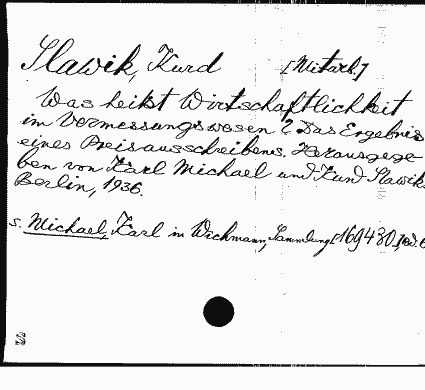 Slawik, Kurd [Mitarb.]
Was heißt Wirtschaftlichkeit
im Vermessungswesen? Das Ergebnis
eines Preisausschreibens. Herausgege
ben von Karl Michael und Kurd Slawik.
Berlin, 1936.
s. Michael, Karl in Wichmann, Sammlung [169430], Bd. 6